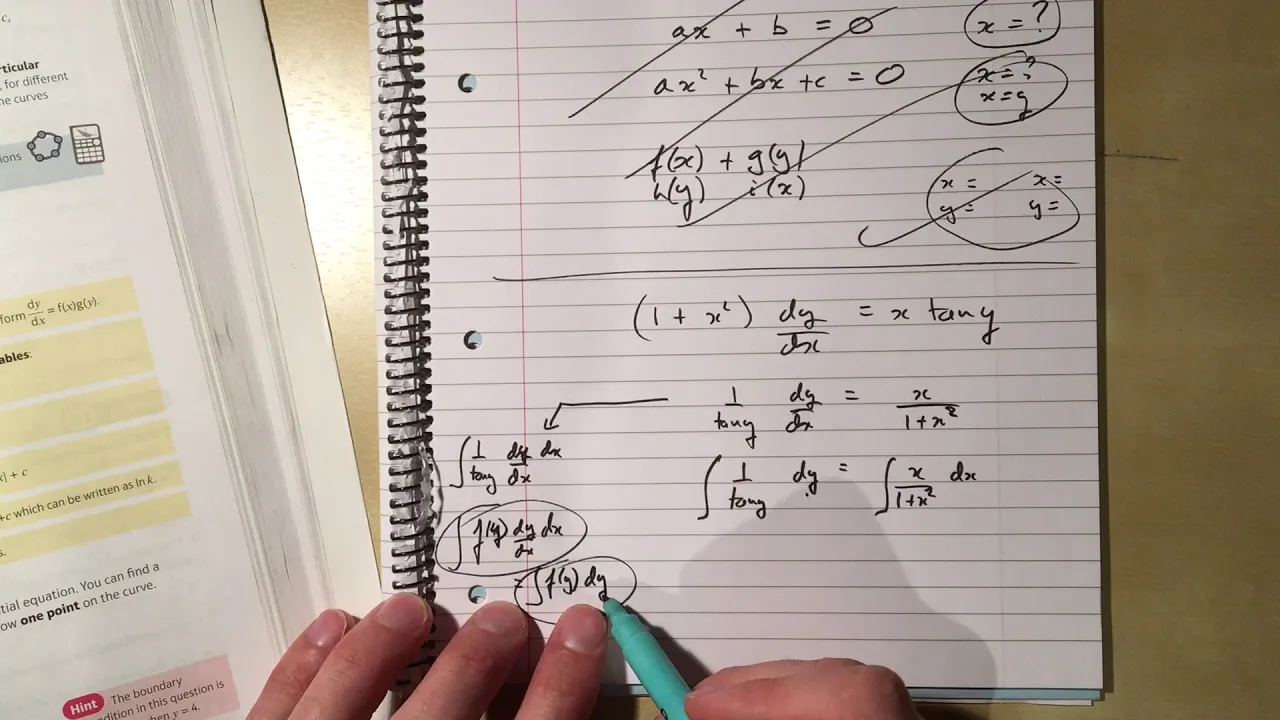 c,
rticular
, for different
ne curves
ions
form dy/dx = f(x)g(y).
ables:
x| + c
+c which can be written as ln k.
s.
tial equation. You can find a
ow one point on the curve.
Hint The boundary
ndition in this question is
hen y = 4.
ax + b = 0 x = ?
ax² + bx + c = 0 x = ?
x = y
f(x) + g(y)
h(y) i(x)
x = x =
y = y =
(1 + x²) dy/dx = x tan y
1/tan y dy/dx = x/1+x²
∫ 1/tan y dy/dx dx
∫ 1/tan y dy = ∫ x/1+x² dx
∫ f(y) dy/dx dx
= ∫ f(y) dy